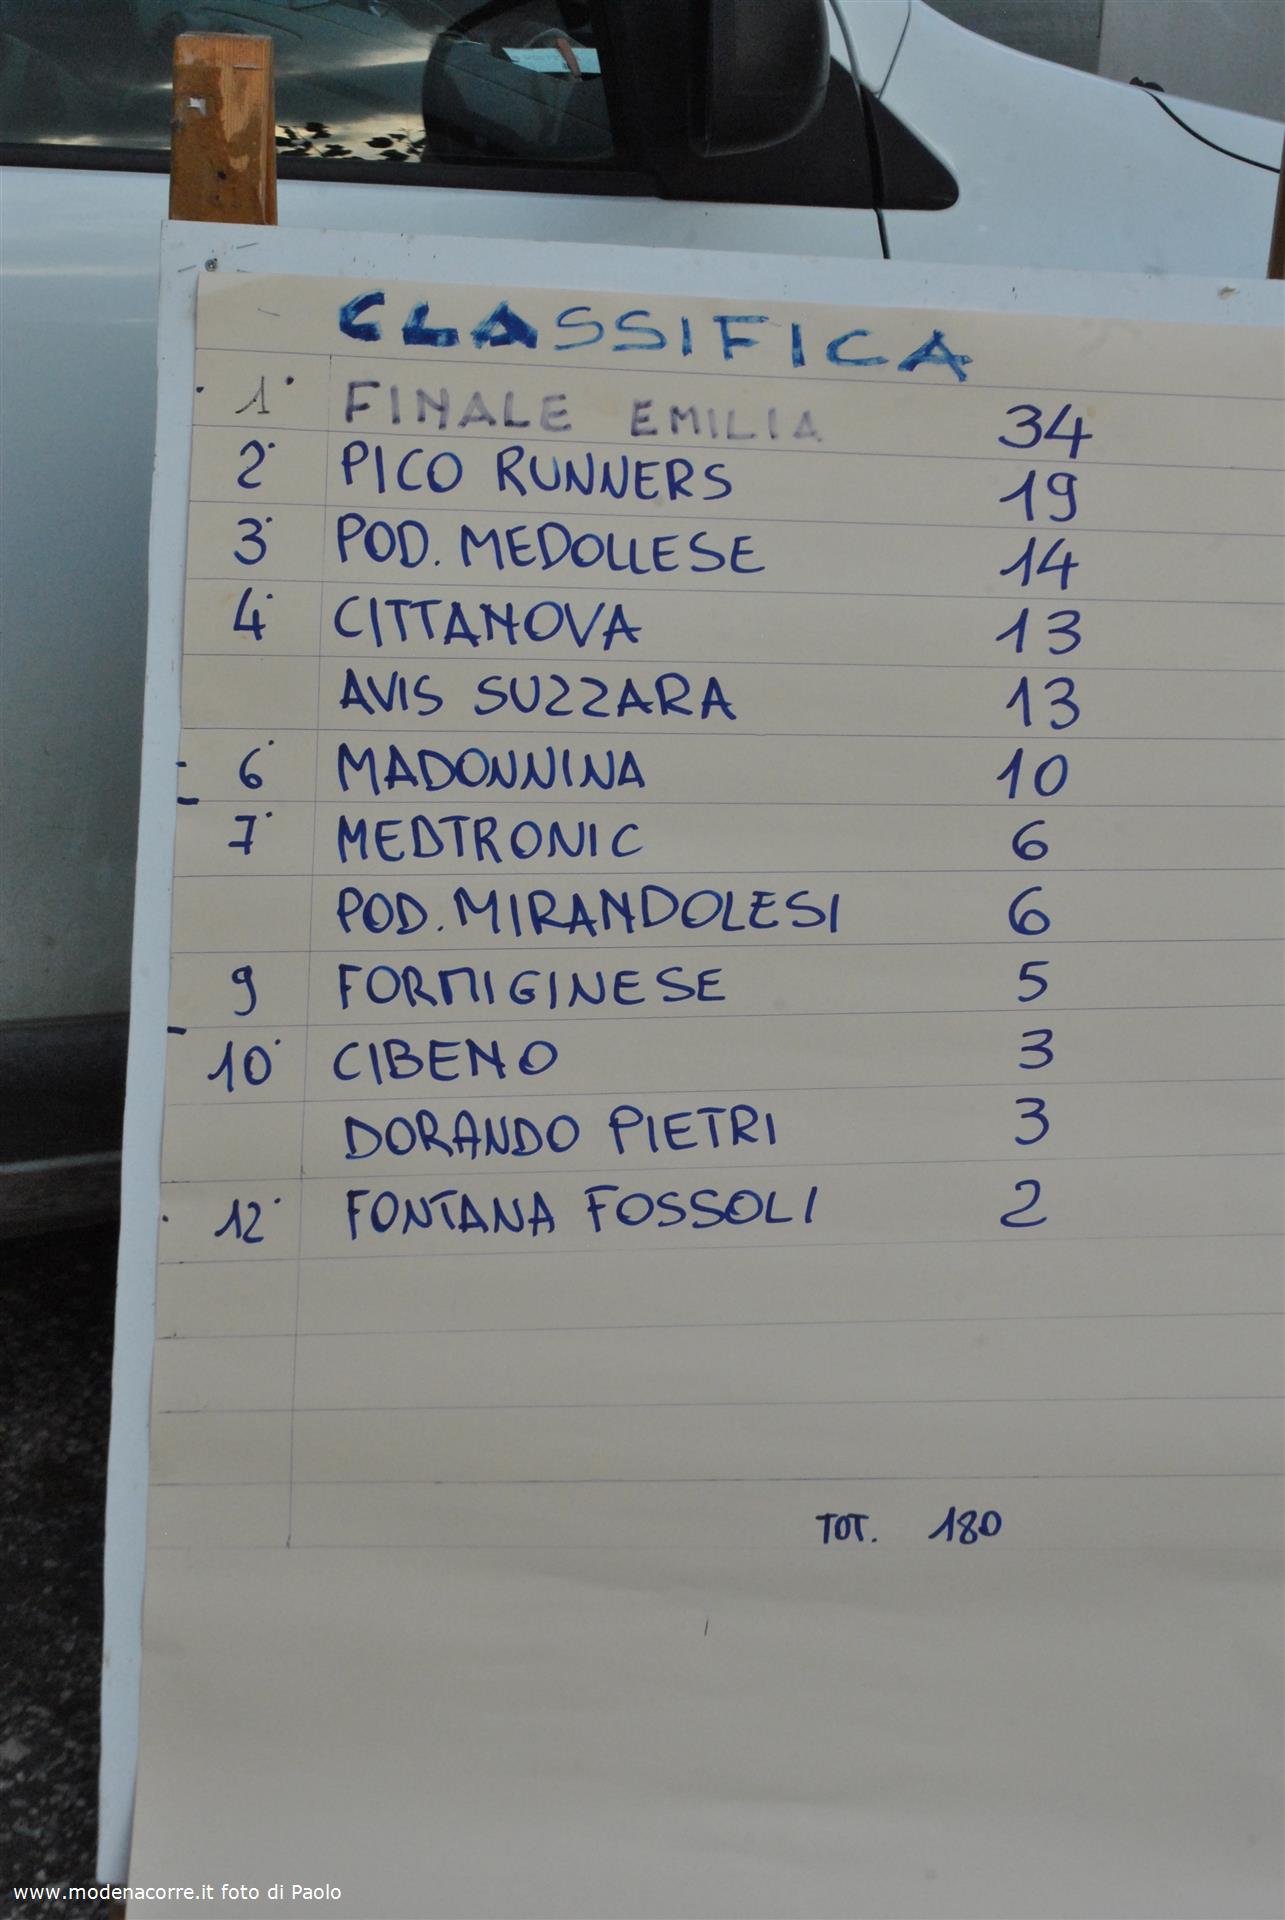 CLASSIFICA
1° FINALE EMILIA 34
2° PICO RUNNERS 19
3° POD. MEDOLLESE 14
4° CITTANOVA 13
AVIS SUZZARA 13
6° MADONNINA 10
7° MEDTRONIC 6
POD. MIRANDOLESI 6
9 FORMIGINESE 5
10° CIBENO 3
DORANDO PIETRI 3
12° FONTANA FOSSOLI 2
TOT. 180
www.modenacorre.it foto di Paolo